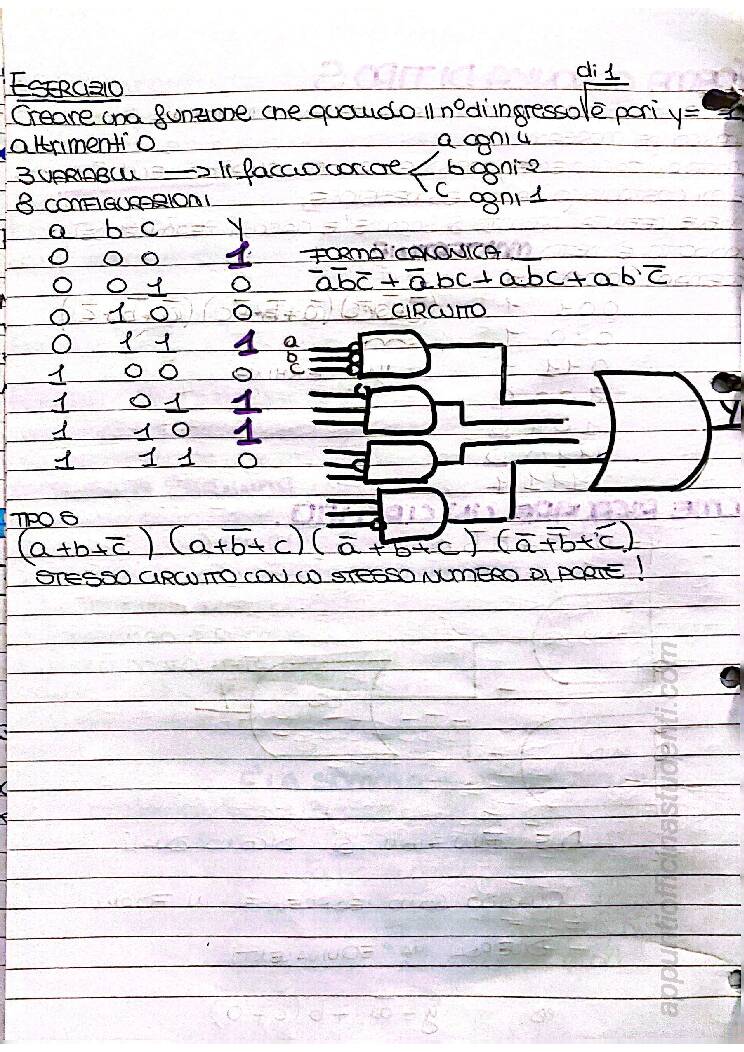 ESERCIZIO
di 1
Creare una funzione che quando il n° di ingresso è pari y=
altrimenti 0
a ogni 4
3 VARIABILI → li faccio variare b ogni 2
8 CONFIGURAZIONI c ogni 1
a b c y
0 0 0 1 FORMA CANONICA
0 0 1 0 a̅b̅c̅ + a̅bc + abc + ab·c̅
0 1 0 0 CIRCUITO
0 1 1 1 a
b
1 0 0 0 c
1 0 1 1 y
1 1 0 1
1 1 1 0
TIPO S
(a+b+c̅) (a+b̅+c) (a̅+b+c) (a̅+b̅+c̅)
STESSO CIRCUITO CON LO STESSO NUMERO DI PORTE!
appuntiofficinastudenti.com